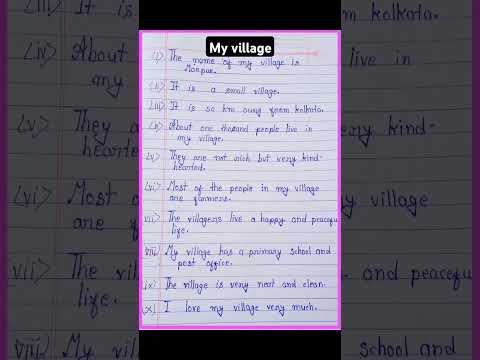 My village
(i) The name of my village is
Monpur.
(ii) It is a small village.
(iii) It is 50 km away from kolkata.
(iv) About one thousand people live in
my village.
(v) They are not rich but very kind-
hearted.
(vi) Most of the people in my village
are farmers.
(vii) The villagers live a happy and peaceful
life.
(viii) My village has a primary school and
post office.
(ix) The village is very neat and clean.
(x) I love my village very much.